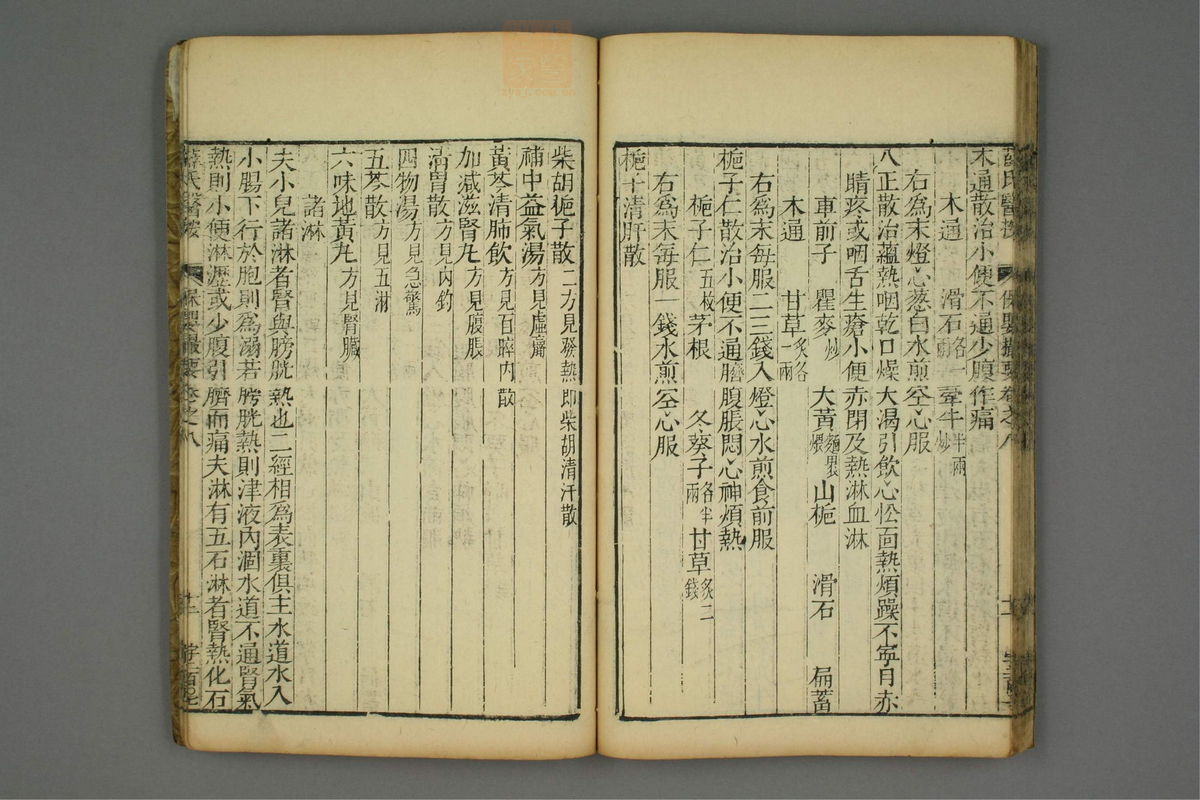 木通散治小便不通少腹作痛
木通 滑石各一兩 牽牛半兩炒
右為末燈心葱白水煎空心服
八正散治蘊熱咽乾口燥大渴引飲心忪面熱煩躁不寧目赤
睛疼或咽舌生瘡小便赤閉及熱淋血淋
車前子 瞿麥炒 大黃麵裹煨 山梔 滑石 扁蓄
木通 甘草炙各一兩
右為末每服二三錢入燈心水煎食前服
梔子仁散治小便不通臍腹脹悶心神煩熱
梔子仁五枚 茅根 冬葵子各半兩 甘草炙二錢
右為末每服一錢水煎空心服
梔子清肝散
柴胡梔子散二方見發熱即柴胡清汗散
補中益氣湯方見虛羸
黃芩清肺飲方見百晬內散
加減滋腎丸方見腹脹
清胃散方見內釣
四物湯方見急驚
五苓散方見五淋
六味地黃丸方見腎臟
諸淋
夫小兒諸淋者腎與膀胱熱也二經相為表裏俱主水道水入
小腸下行於胞則為溺若膀胱熱則津液內涸水道不通腎氣
熱則小便淋瀝或少腹引臍而痛夫淋有五石淋者腎熱化石
薛氏醫按 保嬰撮要卷之八